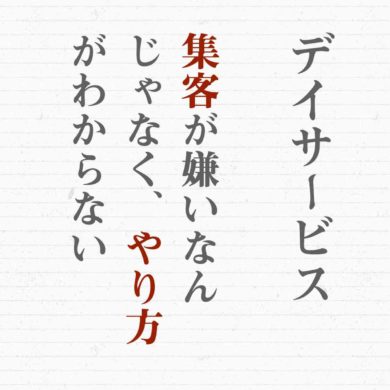 デイサービス
集客が嫌いなん
じゃなく、やり方
がわからない